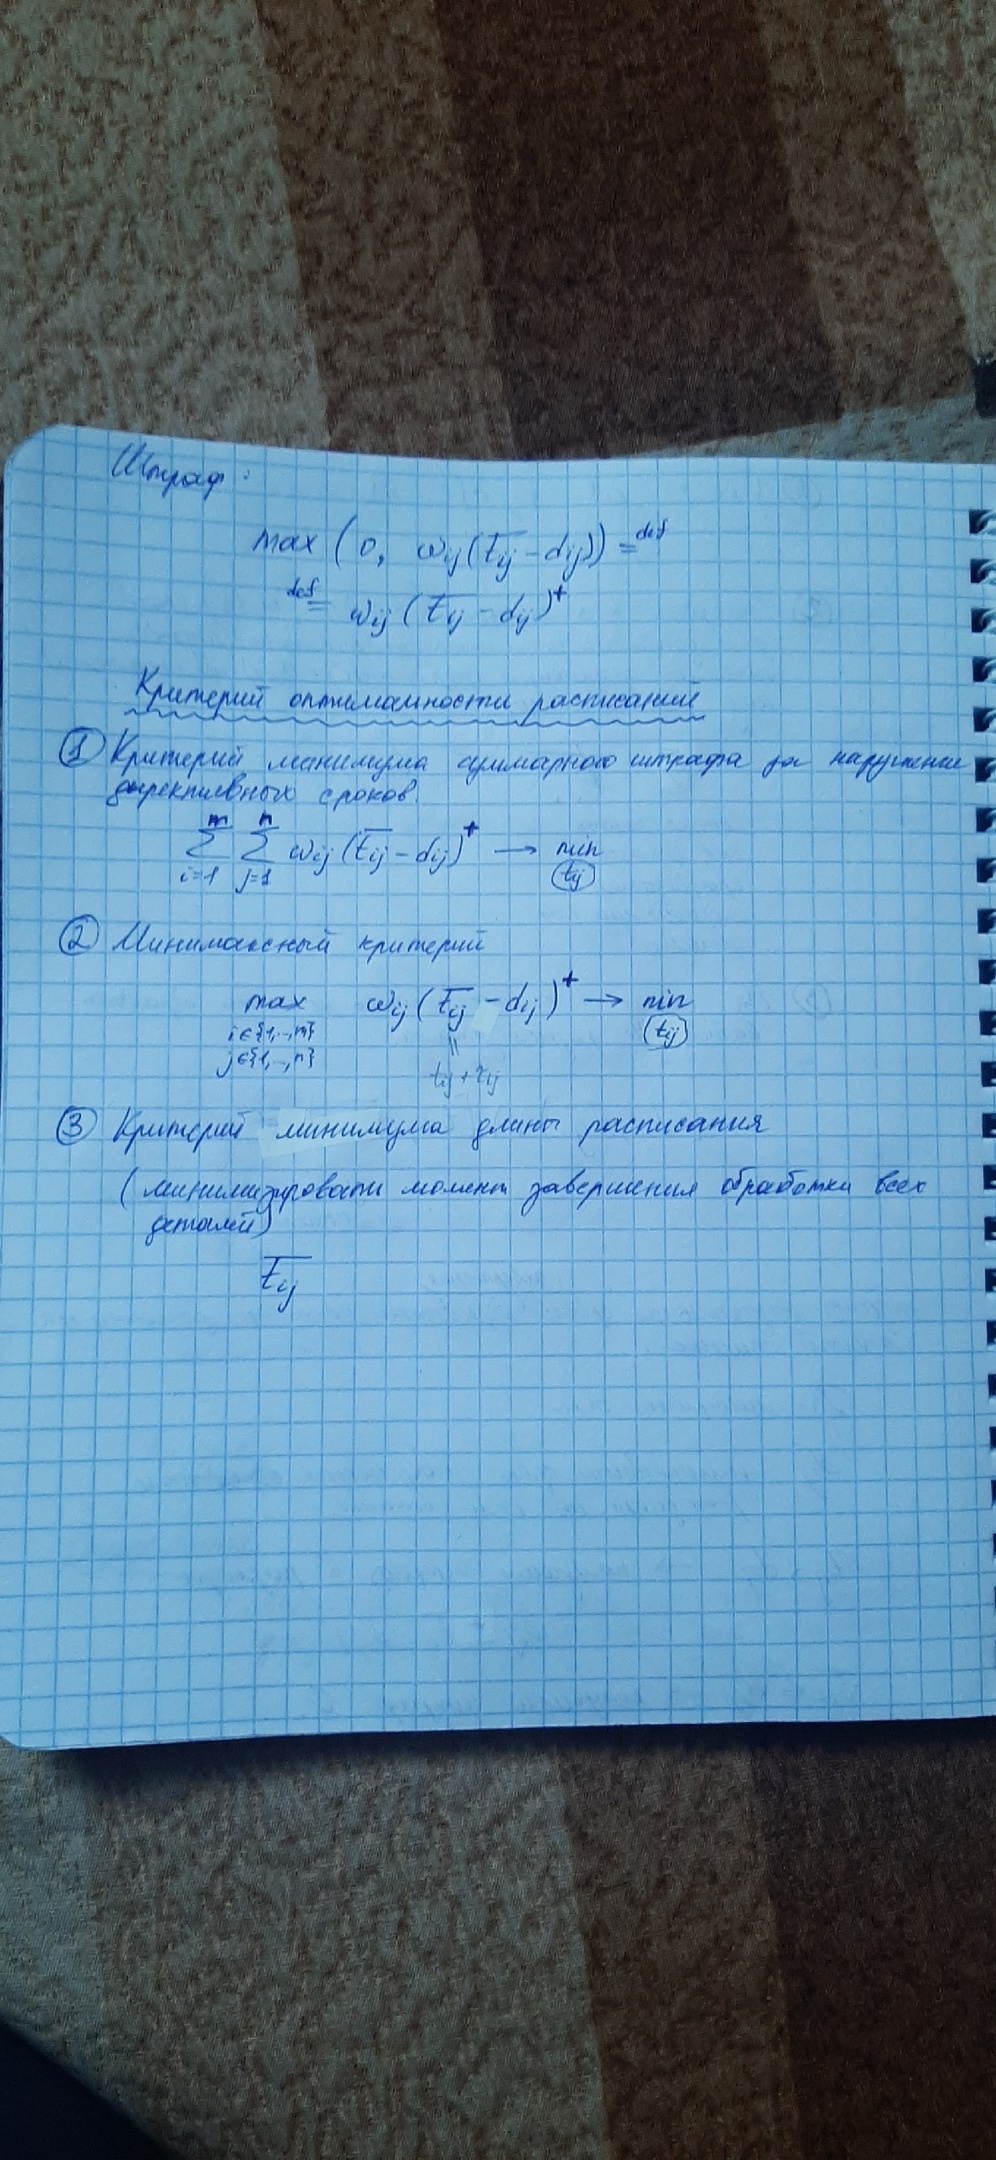 Штраф:
max (0, ωij (t̄ij - dij)) =def
def= ωij (t̄ij - dij)⁺
Критерий оптимальности расписаний
① Критерий минимума суммарного штрафа за нарушение
директивных сроков.
m n
∑ ∑ ωij (t̄ij - dij)⁺ → min
i=1 j=1 (tij)
② Минимаксный критерий
max ωij (t̄ij - dij)⁺ → min
i∈{1,..,m} (tij)
j∈{1,..,n} ||
tij + τij
③ Критерий минимума длины расписания
(минимизировать момент завершения обработки всех
деталей)
t̄ij